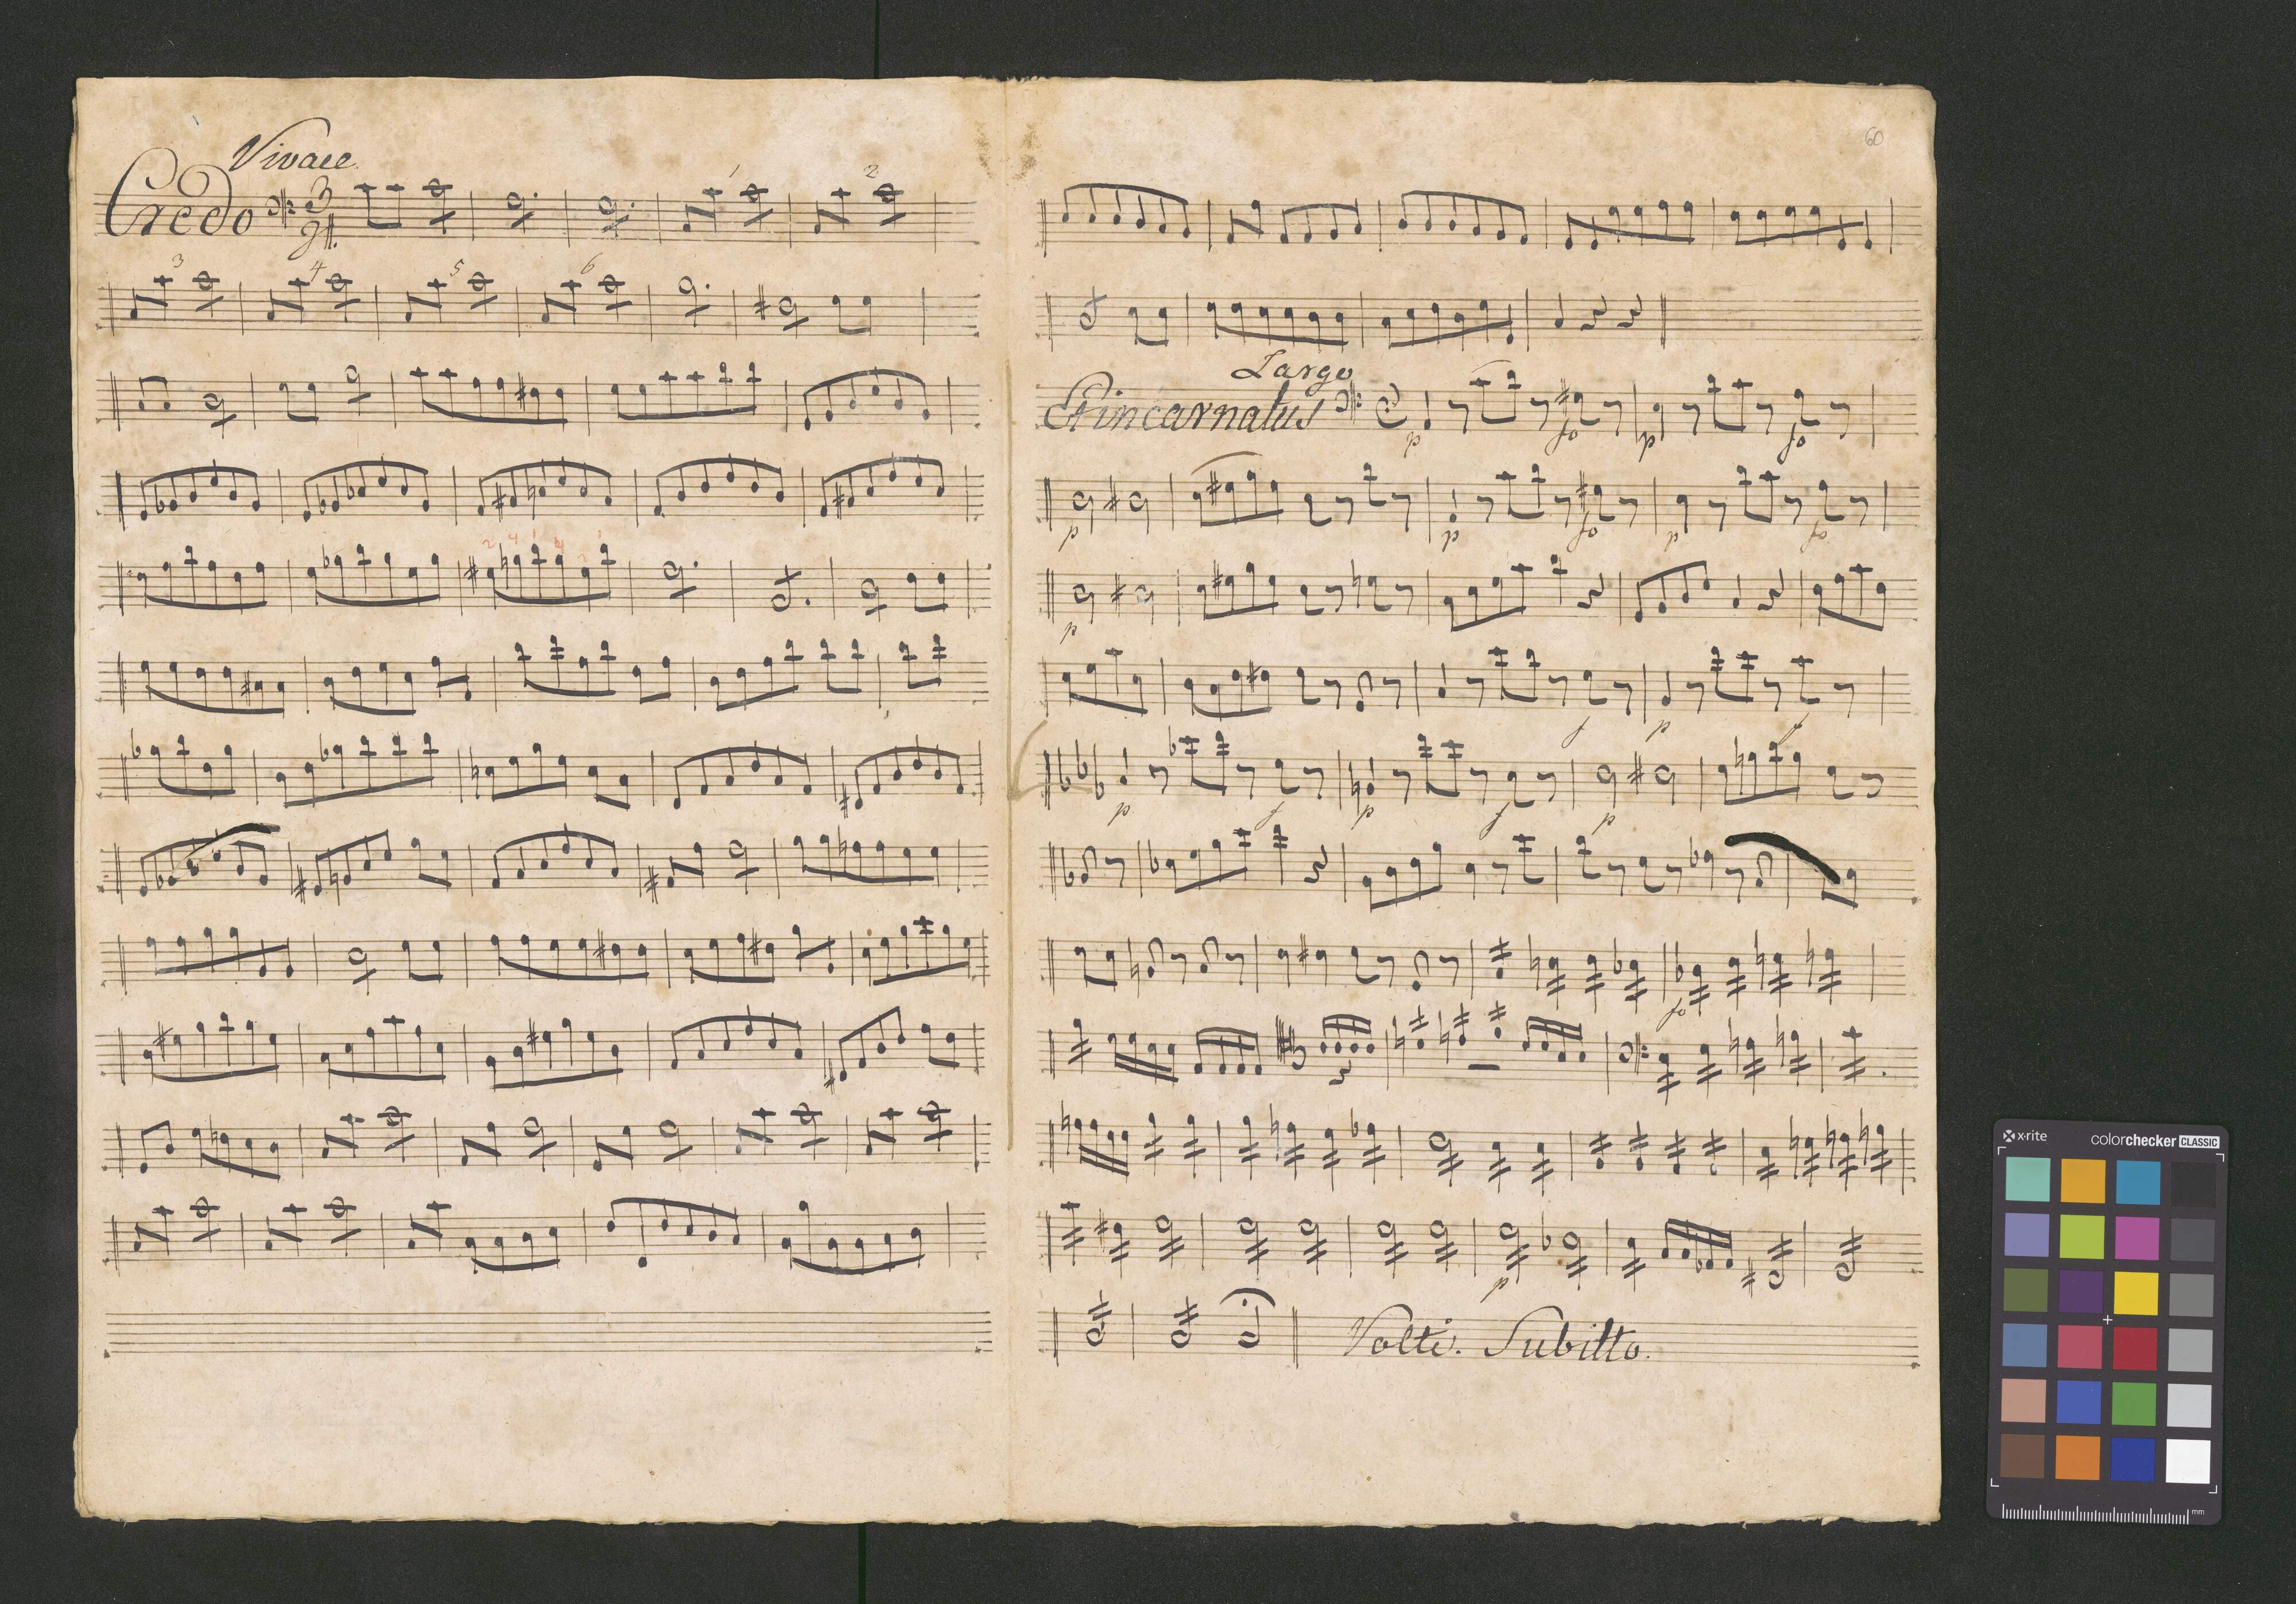 Vivace
Credo 3/4
1 2
3 4 5 6
2 4 1 4 2 1
60
Largo
Et incarnatus
p fo p fo
p p fo p fo
p
f p f
p f p f p
fo
p
Volti. Subitto.
x-rite colorchecker CLASSIC
mm